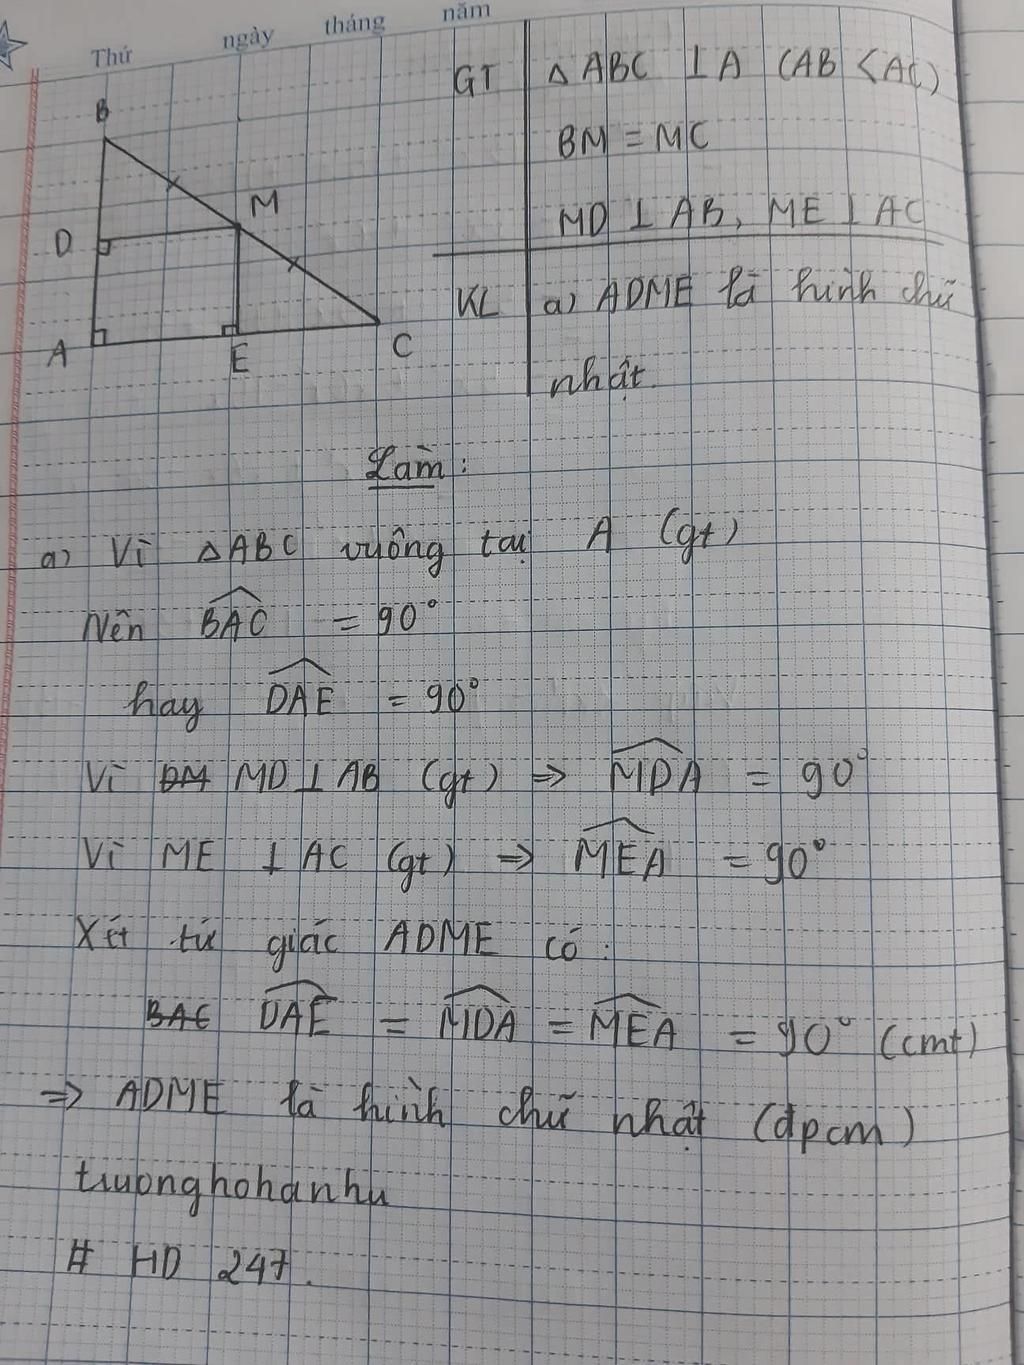 Thứ ngày tháng năm
GT △ABC ⊥ A (AB < AC)
BM = MC
MD ⊥ AB, ME ⊥ AC
KL a) ADME là hình chữ
nhật.
B
M
D
A
E
C
Làm:
a) Vì △ABC vuông tại A (gt)
Nên BAC = 90°
hay DAE = 90°
Vì DM MD ⊥ AB (gt) => MDA = 90°
Vì ME ⊥ AC (gt) => MEA = 90°
Xét tứ giác ADME có:
BAC DAE = MDA = MEA = 90° (cmt)
=> ADME là hình chữ nhật (đpcm)
truonghohanhu
# HD 247.